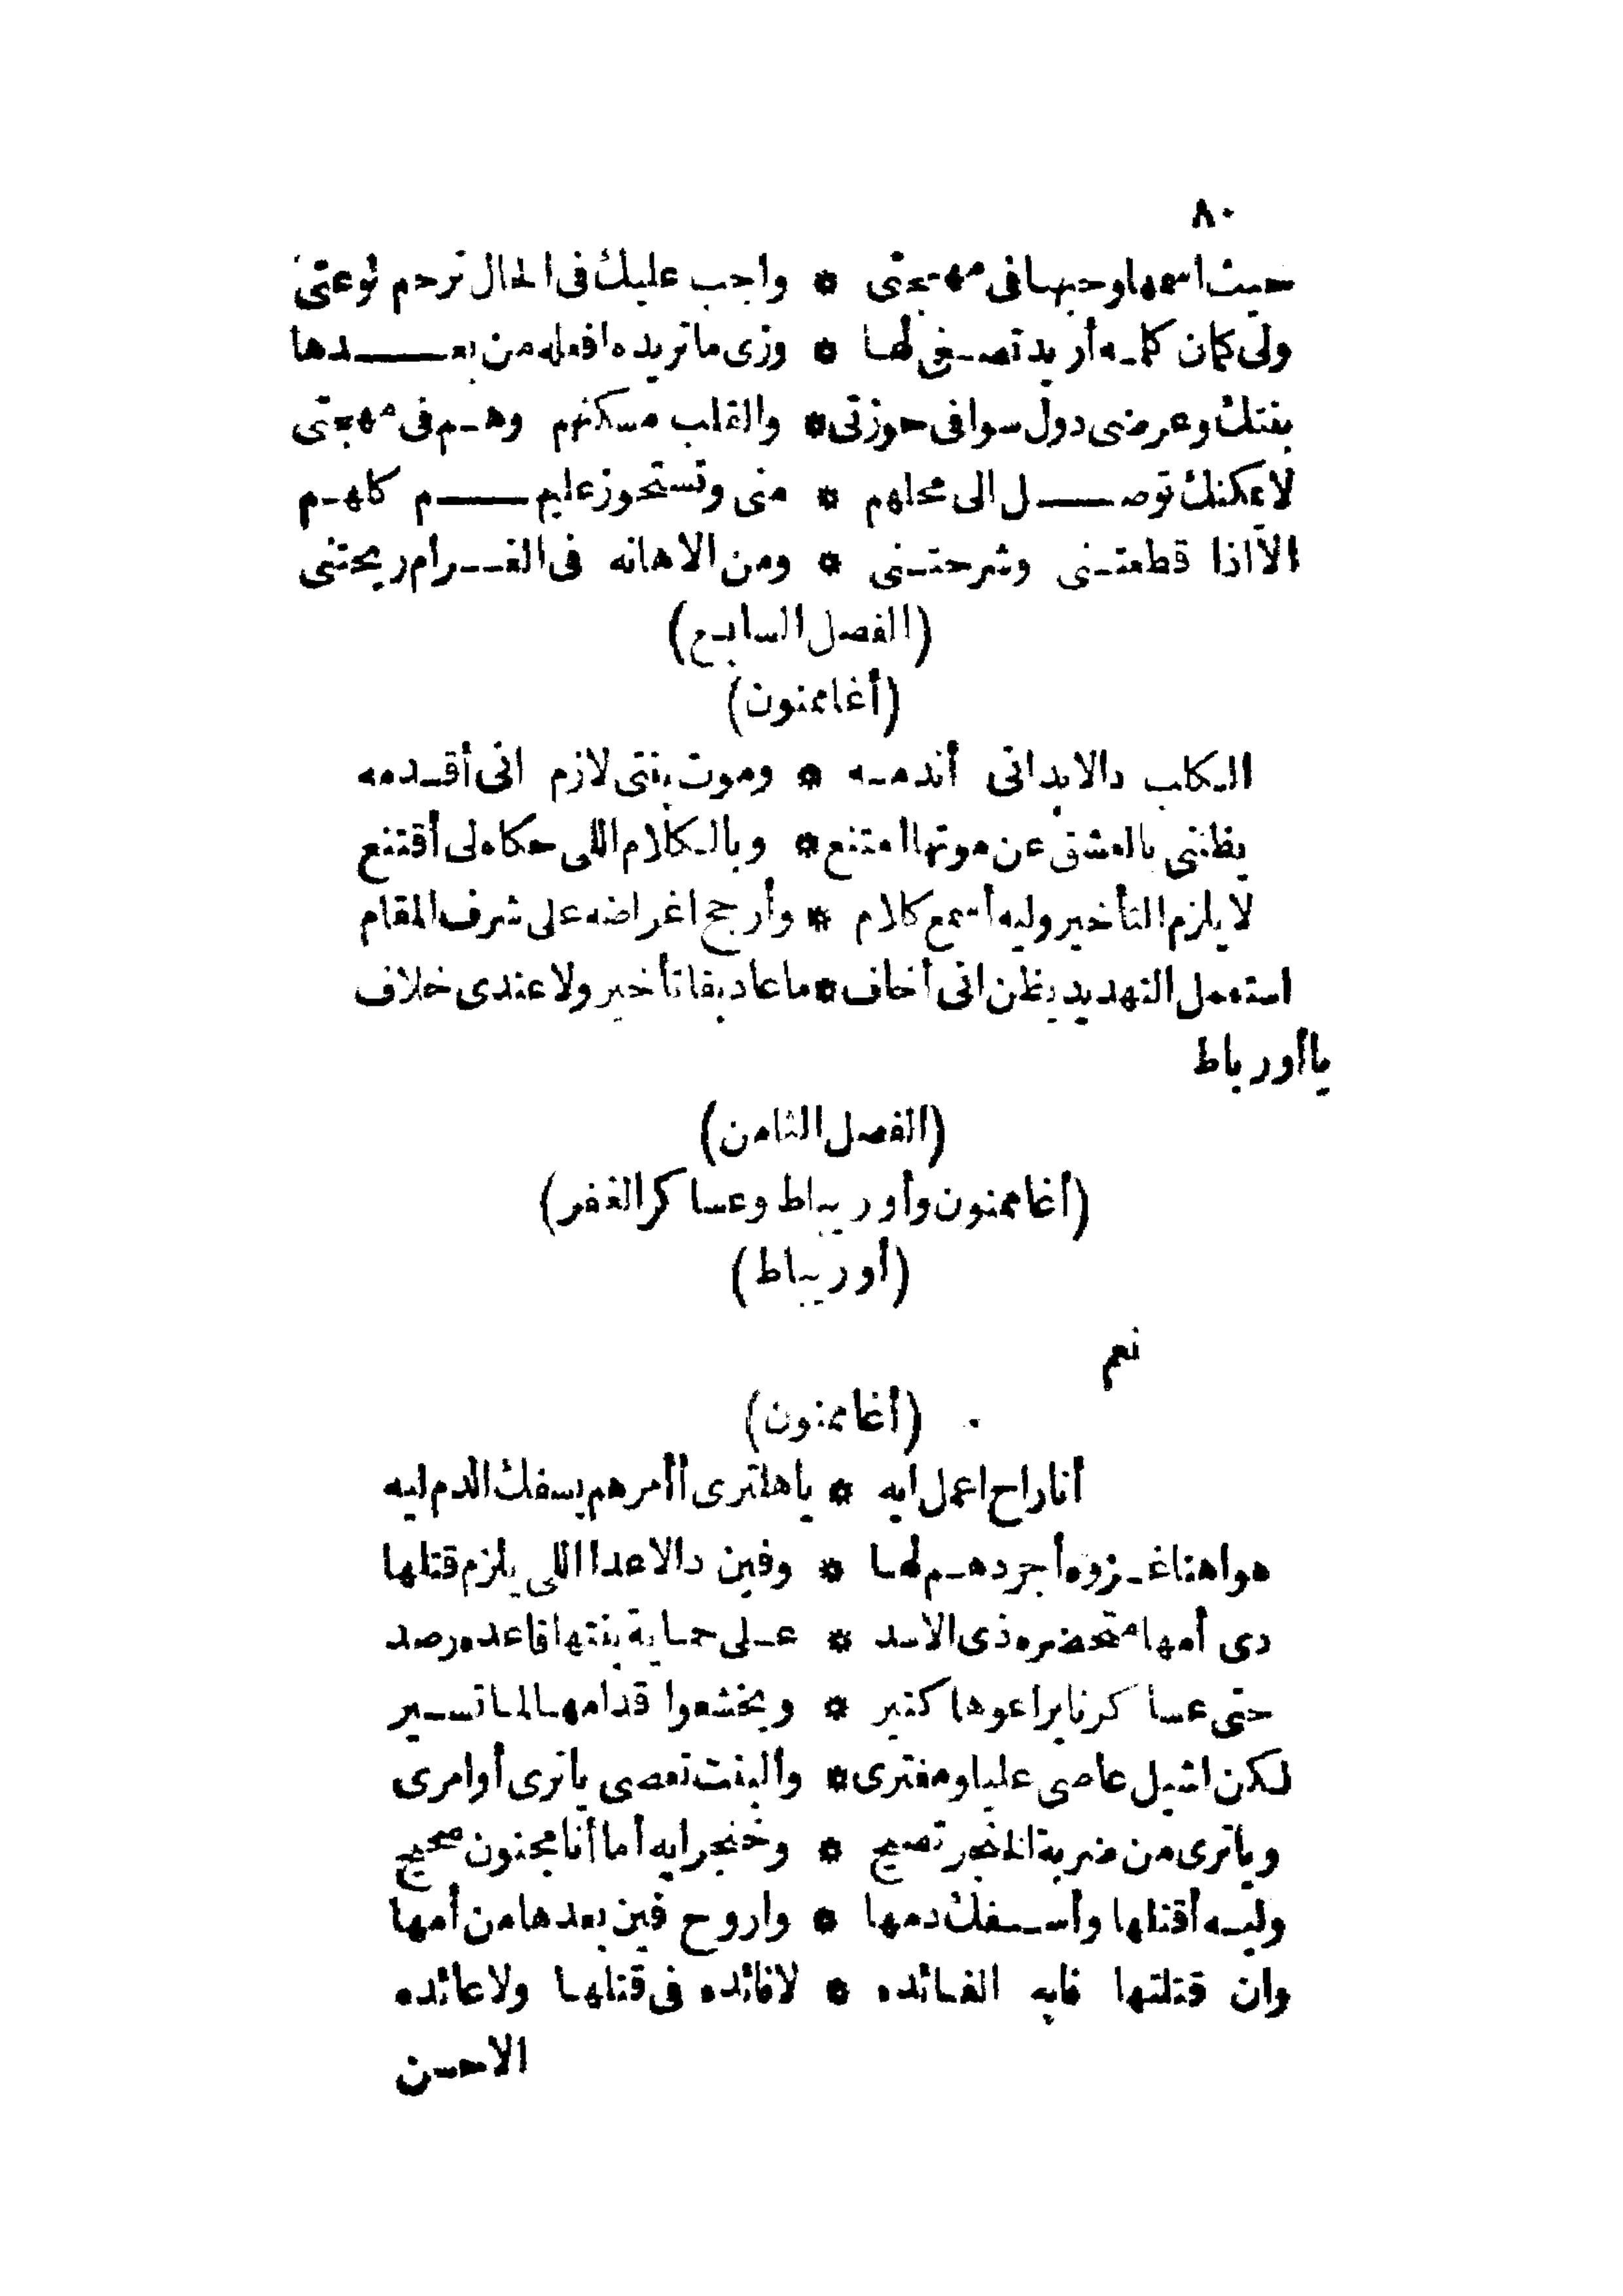 ٨٠
حيث اسمها وحبها فى مهجتى * واجب عليك فى الحال ترحم لوعتى
ولى كمان كلمه أريد تصغى لها * وزى ما تريده افعله من بعدها
بنتك وعرضى دول سوا فى حوزتى * والقلب مسكنهم وهم فى مهجتى
لا يمكنك توصل الى محلهم * منى وتستحوز عليهم كلهم
الا اذا قطعتنى وشرحتنى * ومن الاهانه فى الغرام ريحتنى
(الفصل السابع)
(أغاممنون)
الكلب دالابد انى أندمه * وموت بنتى لازم انى أقدمه
يظننى بالعشق عن موتها امتنع * وبالكلام اللى حكاه لى أقتنع
لا يلزم التأخير وليه أسمع كلام * وأرجح اغراضه على شرف المقام
استعمل التهديد يظن انى أخاف * ما عاد بقا تأخير ولا عندى خلاف
يا أورباط
(الفصل الثامن)
(أغاممنون وأوريباط وعساكر الغفر)
(أوريباط)
نعم
(أغاممنون)
أنا راح اعمل ايه * يا هلترى أأمرهم بسفك الدم ليه
هوا هنا غزوه أجردهم لها * وفين دالاعدا اللى يلزم قتلها
دى أمها متحضره زى الاسد * على حماية بنتها قاعده رصد
حتى عساكرنا يراعوها كتير * ويخشعوا قدامها لما تسير
لكن اشيل عاصى عليا ومفترى * والبنت تعصى يا ترى أوامرى
ويا ترى من ضربة الخنجر تصيح * وخنجر ايه أما أنا مجنون صحيح
وليه أقتلها وأسفك دمها * واروح فين بعدها من أمها
وان قتلتها فايه الفائده * لا فائده فى قتلها ولا عائده
الاحسن